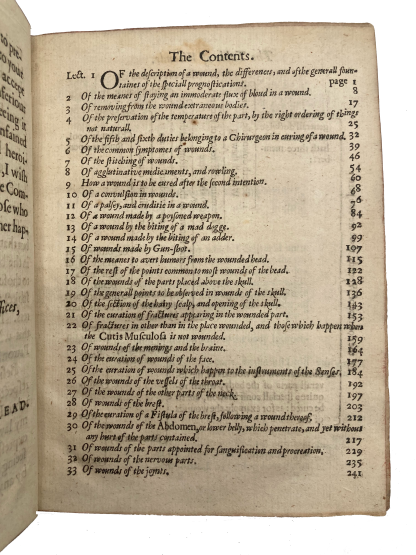 to pre-
accept
eeing it
I wish
e Com-
ose who
ner hap,
fices,
EAD.
The Contents.
Lect. 1 OF the description of a wound, the differences, and of the generall foun-
taines of the speciall prognostications. page 1
2 Of the meanes of staying an immoderate flux of bloud in a wound. 8
3 Of removing from the wound extraneous bodies. 17
4 Of the preservation of the temperature of the part, by the right ordering of things
not naturall. 25
5 Of the fifth and sixth duties belonging to a Chirurgeon in curing of a wound. 32
6 Of the common symptomes of wounds. 39
7 Of the stitching of wounds. 46
8 Of agglutinative medicaments, and rowling. 54
9 How a wound is to be cured after the second intention. 60
10 Of a convulsion in wounds. 68
11 Of a palsey, and cruditie in a wound. 76
12 Of a wound made by a poysoned weapon. 84
13 Of a wound by the biting of a mad dogge. 92
14 Of a wound made by the biting of an adder. 99
15 Of wounds made by Gun-shot. 107
16 Of the meanes to avert humors from the wounded head. 115
17 Of the rest of the points common to most wounds of the head. 122
18 Of the wounds of the parts placed above the skull. 128
19 Of the generall points to be observed in wounds of the skull. 136
20 Of the section of the hairy scalp, and opening of the skull. 143
21 Of the curation of fractures appearing in the wounded part. 153
22 Of fractures in other than in the place wounded, and those which happen when
the Cutis Musculosa is not wounded. 159
23 Of wounds of the menings and the braine. 164
24 Of the curation of wounds of the face. 177
25 Of the curation of wounds which happen to the instruments of the Senses. 184
26 Of the wounds of the vessels of the throat. 192
27 Of the wounds of the other parts of the neck. 197
28 Of wounds of the brest. 203
29 Of the curation of a Fistula of the brest, following a wound thereof. 212
30 Of the wounds of the Abdomen, or lower belly, which penetrate, and yet without
any hurt of the parts contained. 217
31 Of wounds of the parts appointed for sanguification and procreation. 229
32 Of wounds of the nervous parts. 235
33 Of wounds of the joynts. 241